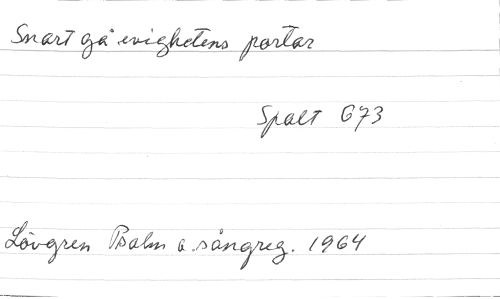 Snart gå evighetens portar
Spalt 673
Lövgren Psalm o. sångreg. 1964